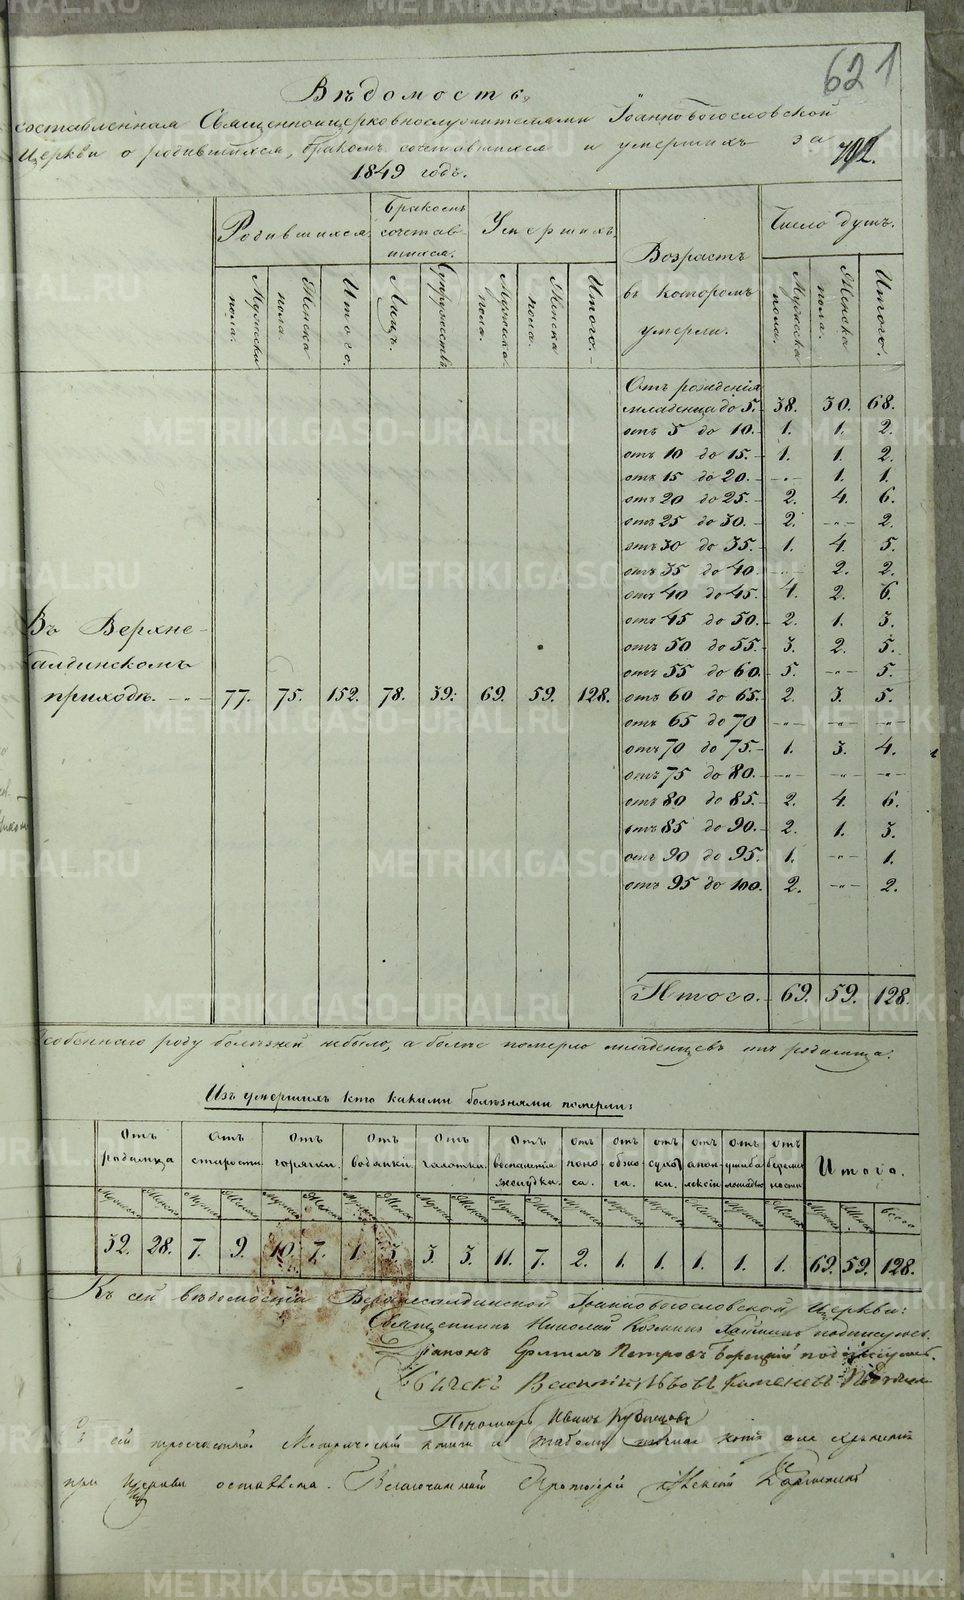 621
Вѣдомость,
составленная Священноицерковнослужителями Іоанновогословской
Церкви о родившихся, бракомъ сочетавшихся и умершихъ за
1849 годъ.
Родившихся. Бракомъ сочетавшихся. Умершихъ. Возрастъ въ которомъ умерли. Число душъ.
Мужеска пола. Женска пола. Итого. Лицъ. Супружествъ. Мужеска пола. Женска пола. Итого. Мужеска пола. Женска пола. Итого.
Отъ рожденія
младенца до 5. 38. 30. 68.
отъ 5 до 10. 1. 1. 2.
отъ 10 до 15. 1. 1. 2.
отъ 15 до 20. -"- 1. 1.
отъ 20 до 25. 2. 4. 6.
отъ 25 до 30. 2. -"- 2.
отъ 30 до 35. 1. 4. 5.
отъ 35 до 40. -"- 2. 2.
отъ 40 до 45. 4. 2. 6.
отъ 45 до 50. 2. 1. 3.
отъ 50 до 55. 3. 2. 5.
отъ 55 до 60. 5. -"- 5.
отъ 60 до 65. 2. 3. 5.
отъ 65 до 70 -"- -"- -"-
отъ 70 до 75. 1. 3. 4.
отъ 75 до 80. -"- -"- -"-
отъ 80 до 85. 2. 4. 6.
отъ 85 до 90. 2. 1. 3.
отъ 90 до 95. 1. -"- 1.
отъ 95 до 100. 2. -"- 2.
Въ Верхне-
салдинскомъ
приходѣ. 77. 75. 152. 78. 39. 69. 59. 128.
Итого. 69. 59. 128.
Особеннаго роду болѣзней небыло, а болѣе померло младенцевъ отъ родимца.
Изъ умершихъ кто какими болѣзнями померли:
Отъ родимца Отъ старости Отъ горячки. Отъ водянки Отъ чахотки. Отъ воспаленія желудка. Отъ поноса. Отъ обжога. Отъ сухотки. Отъ апоплексіи Отъ ушиба лошадью Отъ беременности Итого.
32. 28. 7. 9. 10. 7. 1. 3. 3. 3. 11. 7. 2. 1. 1. 1. 1. 1. 69. 59. 128.
Къ сей вѣдомости Верхнесалдинской Іоанновогословской Церкви:
Священникъ Николай подписуюсь.
Діаконъ Петровъ подписуюсь.
Василій Львовъ Каменевъ
Пономарь Иванъ Кузнецовъ
при Церкви оставлена. Благочинный Протоіерей Алексій
METRIKI.GASO-URAL.RU